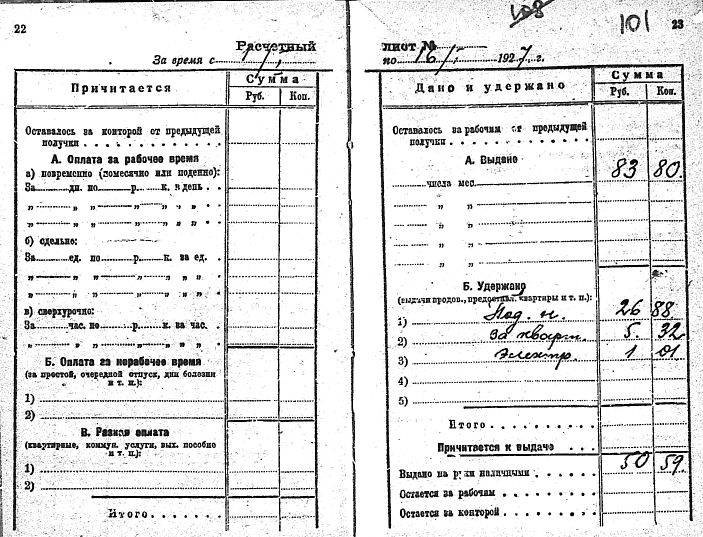 22
Расчетный
За время с 1/
Причитается
Сумма
Руб. Коп.
Оставалось за конторой от предыдущей
получки
А. Оплата за рабочее время
а) повременно (помесячно или поденно):
За дн. по р. к. в день
„ „ „ „ „ „ „
„ „ „ „ „ „ „
б) сдельно:
За ед. по р. к. за ед.
„ „ „ „ „ „ „
„ „ „ „ „ „ „
в) сверхурочно:
За час. по р. к. за час.
„ „ „ „ „ „ „
Б. Оплата за нерабочее время
(за простой, очередной отпуск, дни болезни
и т. п.):
1)
2)
В. Разная оплата
(квартирные, коммун. услуги, вых. пособие
и т. п.):
1)
2)
Итого
108
101 23
лист №
по 16/ 1927 г.
Дано и удержано
Сумма
Руб. Коп.
Оставалось за рабочим от предыдущей
получки
А. Выдано 83 80
числа мес.
„ „
„ „
„ „
„ „
Б. Удержано
(выдачи продов., предоставл. квартиры и т. п.):
1) Под. н. 26 88
2) За кварт. 5. 32
3) Электр. 1 01
4)
5)
Итого
Причитается к выдаче
Выдано на руки наличными 50 59
Остается за рабочим
Остается за конторой